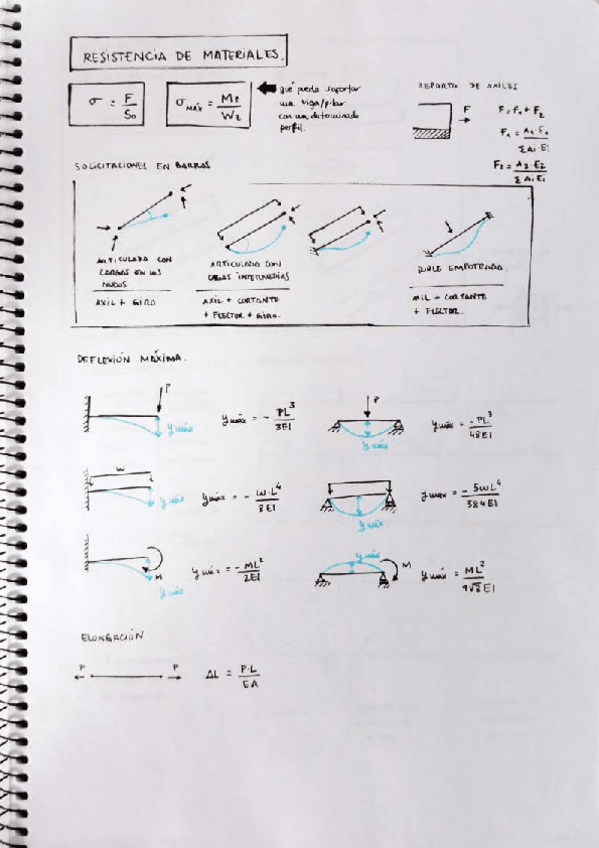 RESISTENCIA DE MATERIALES.
σ = F / S₀
σ MÁX = Me / Wz
qué puede soportar
una viga/pilar
con un determinado
perfil.
REPARTO DE AXILES
F
F = F₁ + F₂
F₁ = A₁·E₁ / ΣAi·Ei
F₂ = A₂·E₂ / ΣAi·Ei
SOLICITACIONES EN BARRAS
ARTICULADA CON
CARGAS EN LOS
NUDOS
AXIL + GIRO
ARTICULADA CON
CARGAS INTERMEDIAS
AXIL + CORTANTE
+ FLECTOR + GIRO.
DOBLE EMPOTRADA.
AXIL + CORTANTE
+ FLECTOR.
DEFLEXIÓN MÁXIMA.
P
y máx
y máx = - PL³ / 3EI
P
y máx
y máx = -PL³ / 48EI
W
y máx
y máx = - W·L⁴ / 8EI
y máx
y max = -5wL⁴ / 384EI
M
y máx
y máx = -ML² / 2EI
y máx
M
y máx = ML² / 9√3EI
ELONGACIÓN
P P
ΔL = P·L / EA